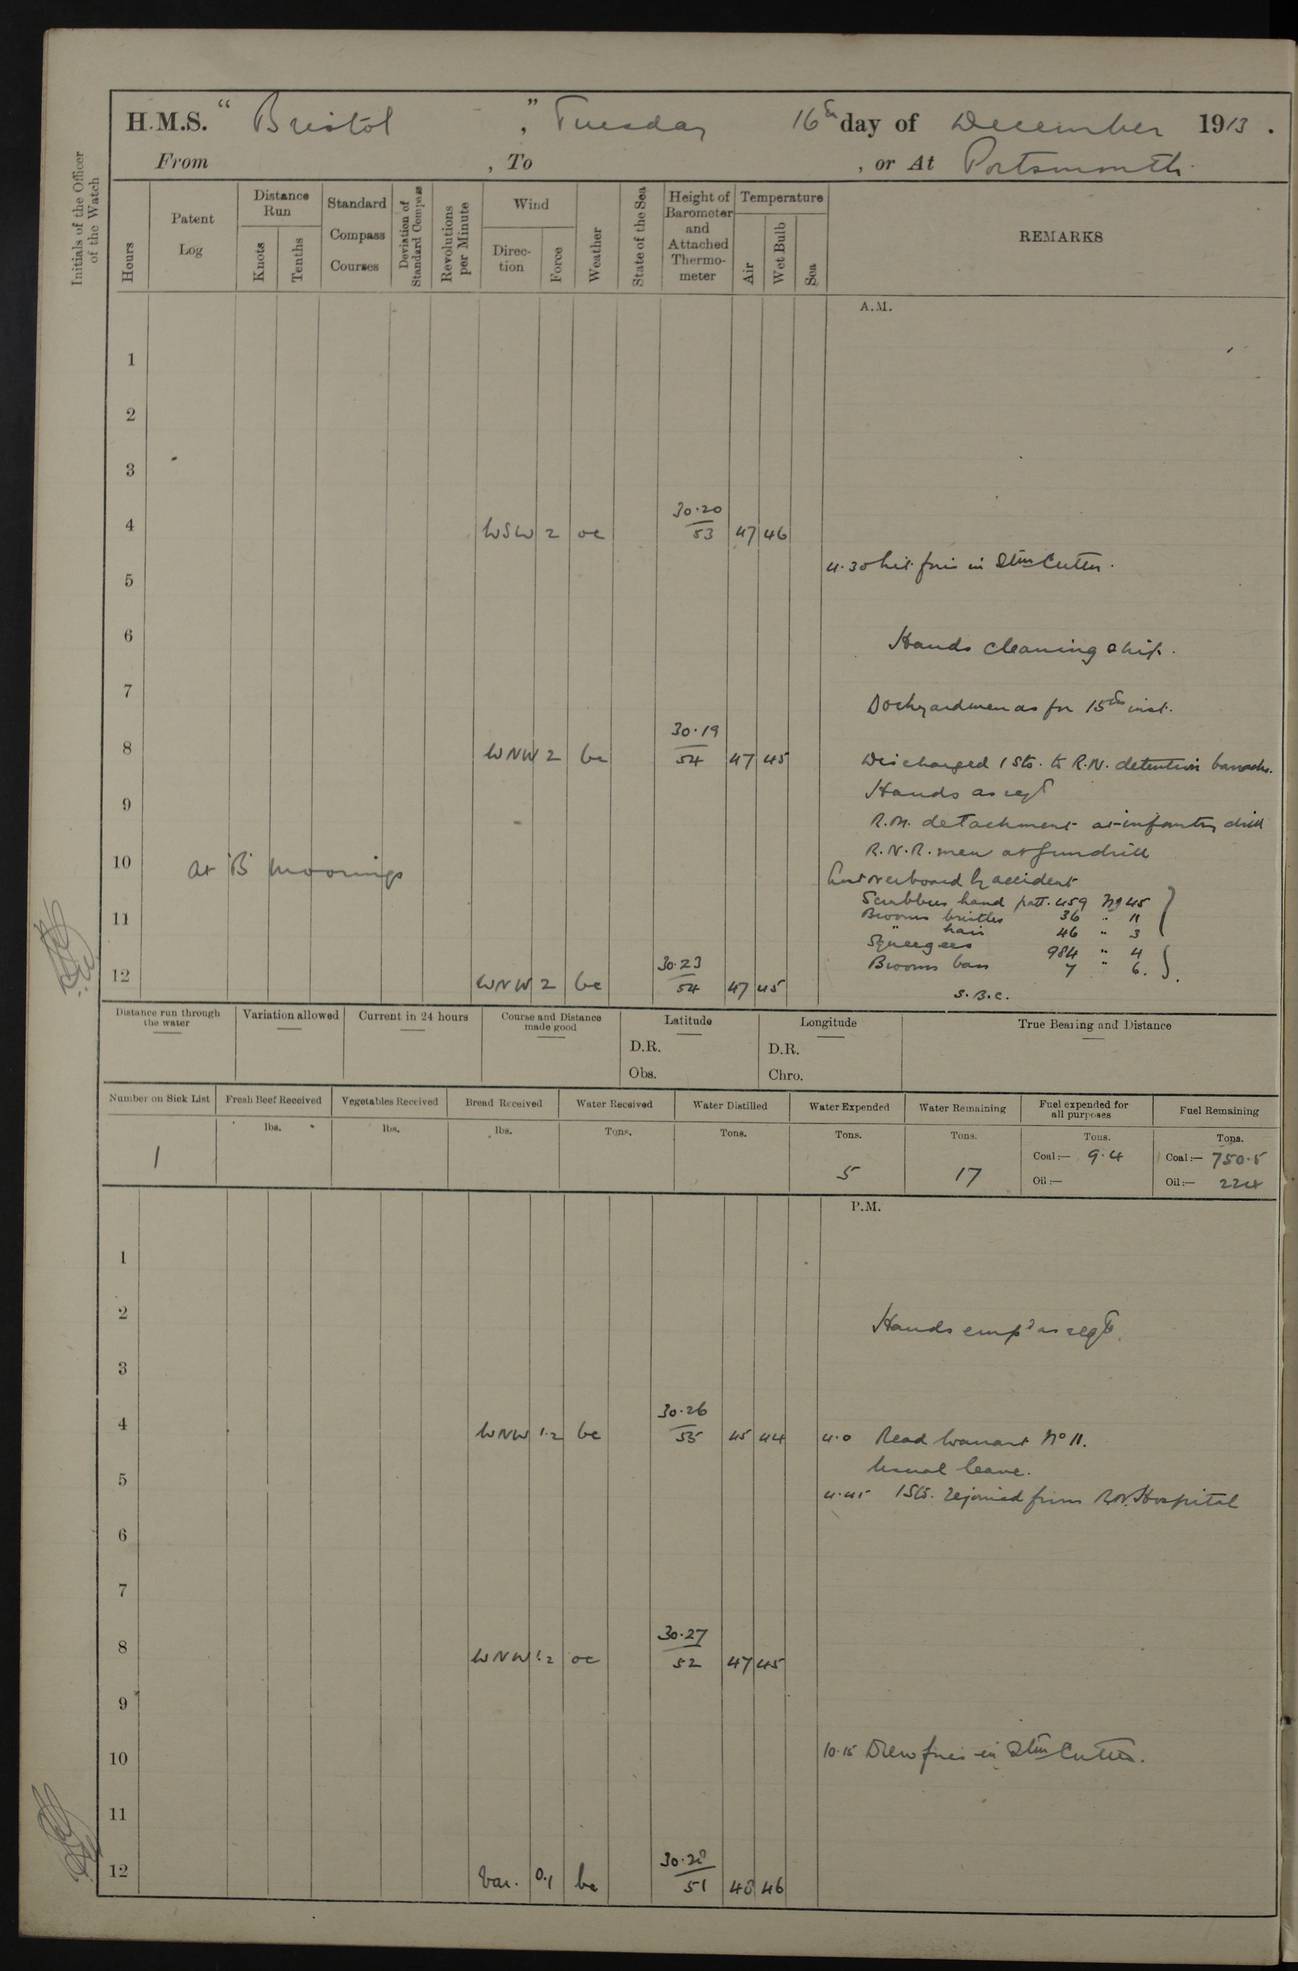 H.M.S. " Bristol ", Tuesday 16th day of December 1913.
From , To , or At Portsmouth.
Initials of the Officer of the Watch
Hours
Patent Log
Distance Run
Knots
Tenths
Standard Compass Courses
Deviation of Standard Compass
Revolutions per Minute
Wind
Direction
Force
Weather
State of the Sea
Height of Barometer and Attached Thermometer
Temperature
Air
Wet Bulb
Sea
REMARKS
A.M.
1
2
3
4 WSW 2 oc 30.20 53 47 46
4.30 Lit fires in Stm Cutter.
5
6 Hands cleaning ship.
7 Dockyardmen as for 15th inst.
8 WNW 2 bc 30.19 54 47 45 Discharged 1 Sto. to R.N. detention barracks.
Hands as reqd
9
R.M. detachment at infantry drill
R.N.R. men at gundrill
10 at 'B' moorings
Lost overboard by accident
Scrubbers hand patt. 459 No 45
11 Brooms bristles 36 " 11
" hair 46 " 3
Squeegees 984 " 4
Brooms bass 7 " 6.
12 WNW 2 bc 30.23 54 47 45
S.B.C.
Distance run through the water
Variation allowed
Current in 24 hours
Course and Distance made good
Latitude
D.R.
Obs.
Longitude
D.R.
Chro.
True Bearing and Distance
Number on Sick List
Fresh Beef Received
Vegetables Received
Bread Received
Water Received
Water Distilled
Water Expended
Water Remaining
Fuel expended for all purposes
Fuel Remaining
lbs. lbs. lbs. Tons. Tons. Tons. Tons. Tons. Tons.
1 5 17 Coal:— 9.4 Coal:— 750.5
Oil:— Oil:— 224
P.M.
1
2 Hands empd as reqd.
3
4 WNW 1.2 bc 30.26 55 45 44 4.0 Read Warrant No 11.
Usual leave.
5 4.45 1 Sto. rejoined from R.N. Hospital
6
7
8 WNW 1.2 oc 30.27 52 47 45
9
10 10.15 Drew fires in Stm Cutter.
11
12 Var. 0.1 bc 30.28 51 48 46